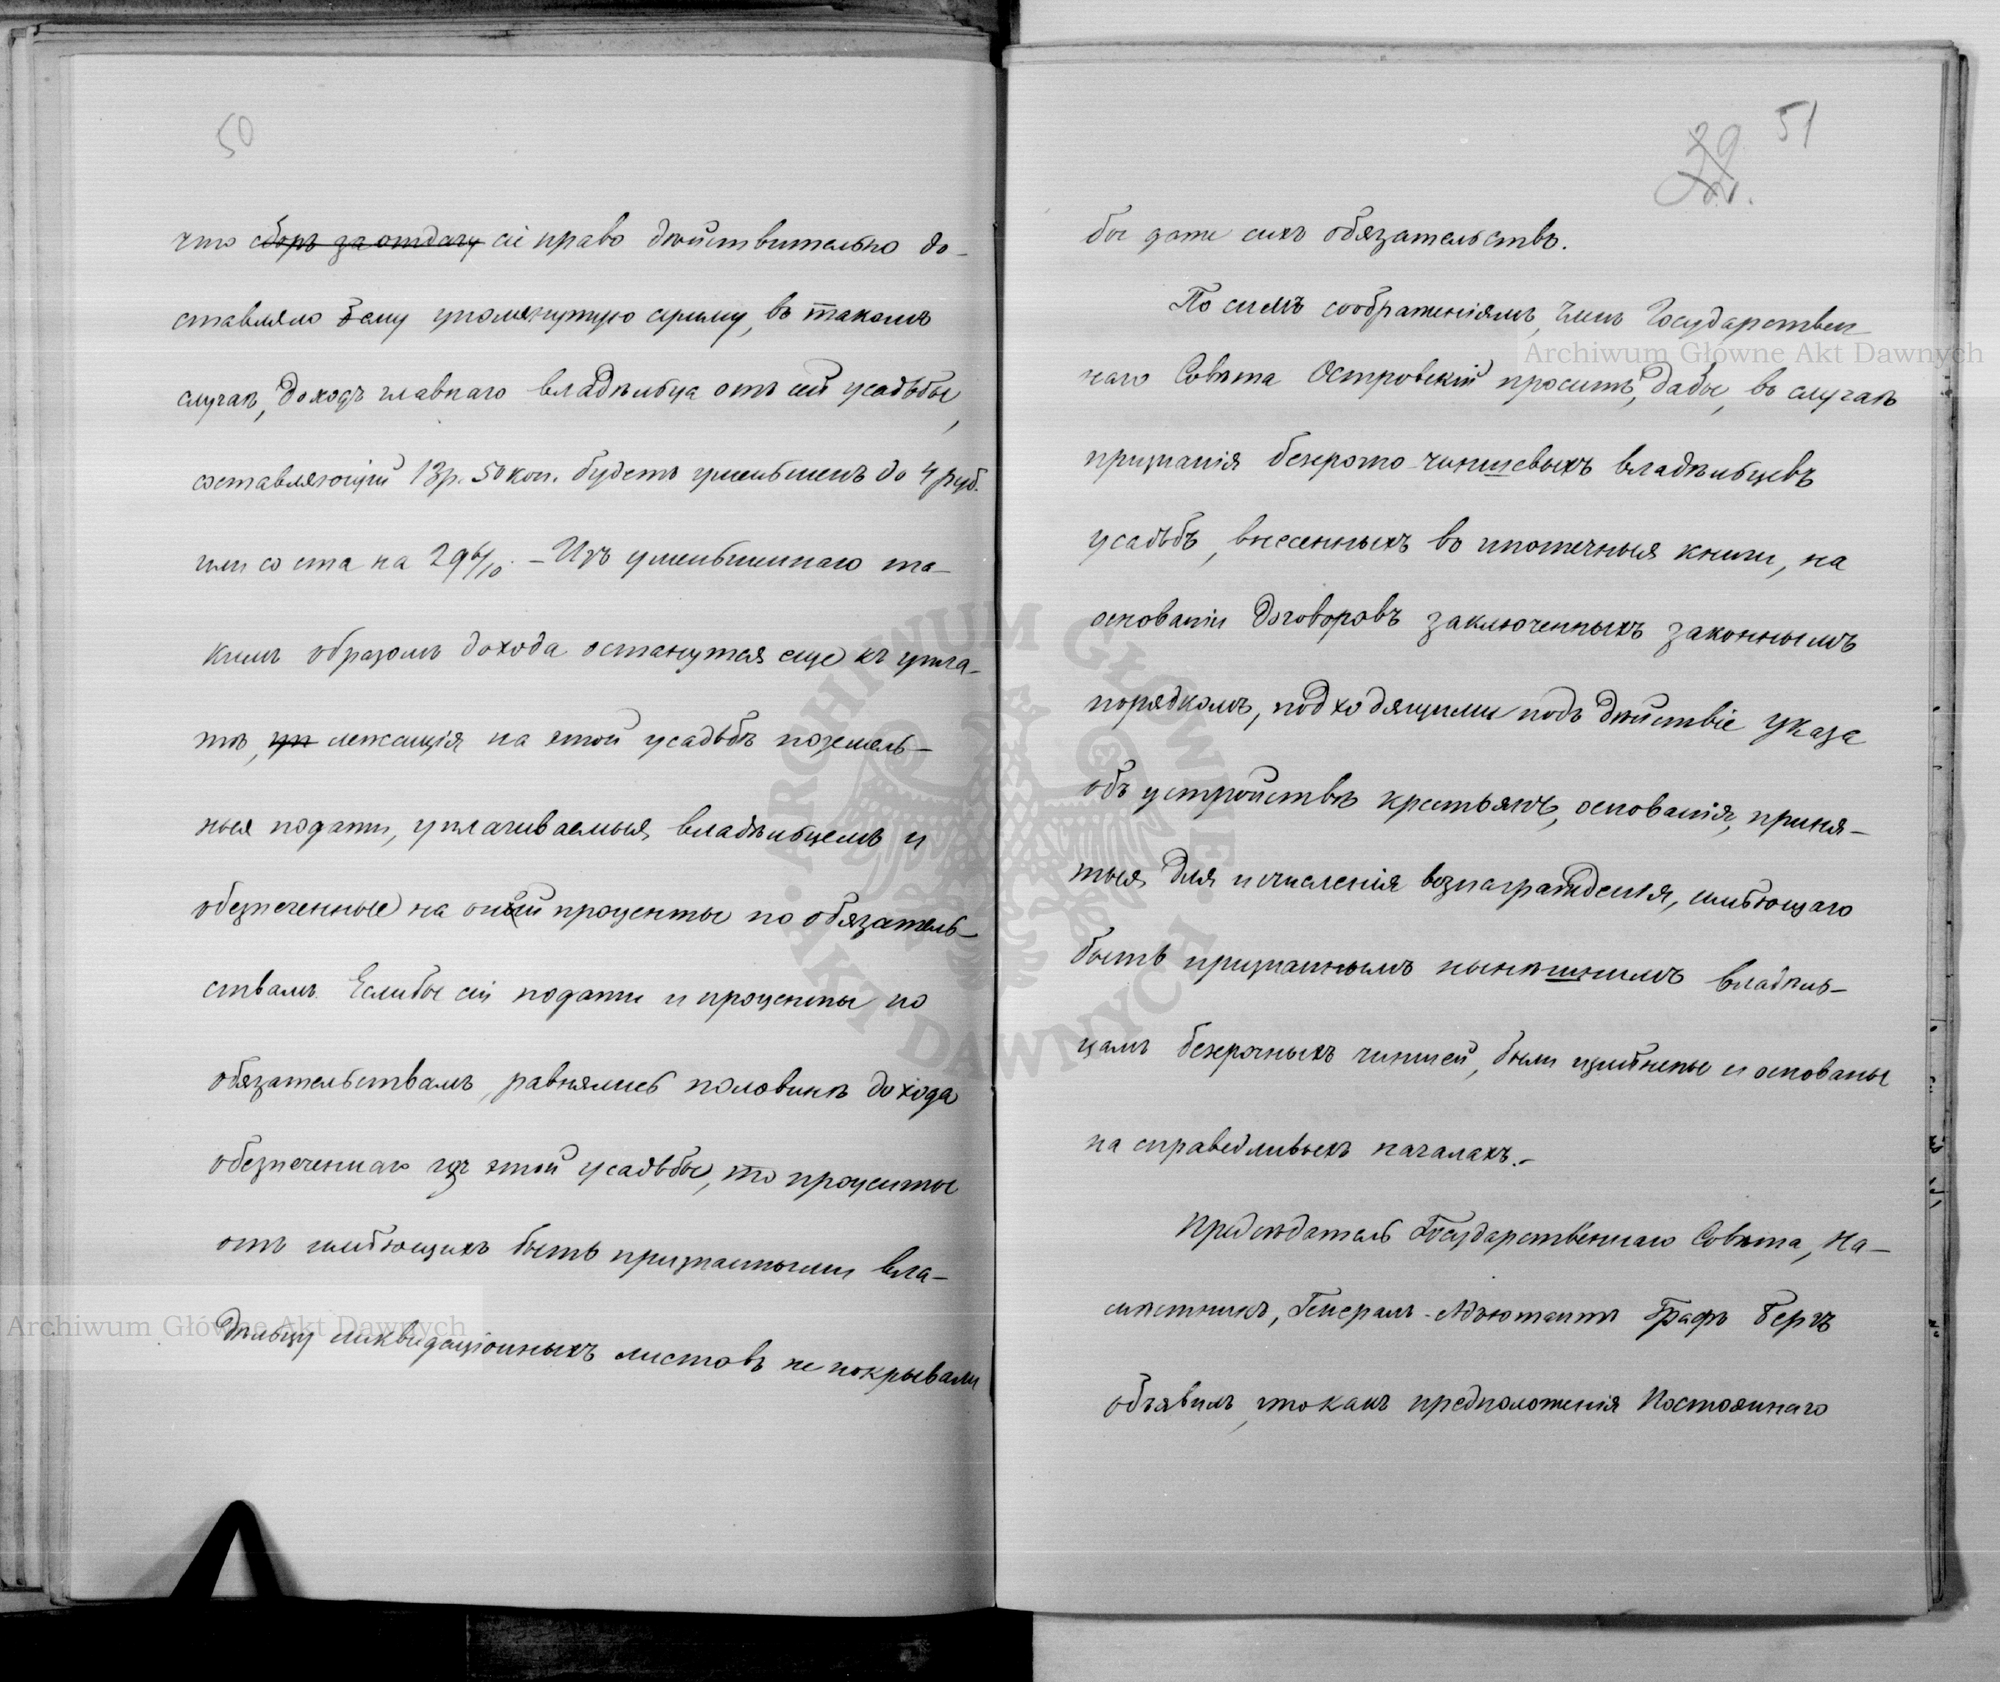 50
что сборъ за отдачу сіе право дѣйствительно до-
ставляло ему упомянутую сумму, въ такомъ
случаѣ, доходъ главнаго владѣльца отъ сей усадьбы,
составляющій 13р. 50 коп. будетъ уменьшенъ до 4 руб.
или со ста на 29 6/10. – Изъ уменьшеннаго та-
кимъ образомъ дохода останутся еще къ упла-
тѣ, уп лежащія на этой усадьбѣ поземель-
ныя подати, уплачиваемыя владѣльцемъ и
обезпеченные на оной проценты по обязатель-
ствамъ. Еслибы сіи подати и проценты по
обязательствамъ, равнялись половинѣ дохода
обезпеченнаго изъ этой усадьбы, то проценты
отъ имѣющихъ быть признанными вла-
дѣльцу ликвидаціонныхъ листовъ не покрывали
51
бы даже сихъ обязательствъ.
По симъ соображеніямъ, Членъ Государствен-
наго Совѣта Островскій проситъ, дабы, въ случаѣ
признанія безсрочно-чиншевыхъ владѣльцевъ
усадьбъ, внесенныхъ въ ипотечныя книги, на
основаніи договоровъ заключенныхъ законнымъ
порядкомъ, подходящими подъ дѣйствіе Указа
объ устройствѣ крестьянъ, основанія, приня-
тыя для исчисленія вознагражденія, имѣющаго
быть признаннымъ нынѣшнимъ владѣль-
цамъ безсрочныхъ чиншей, были измѣнены и основаны
на справедливыхъ началахъ. –
Предсѣдатель Государственнаго Совѣта, На-
мѣстникъ, Генералъ-Адъютантъ Графъ Бергъ
объявилъ, что какъ предположенія Постояннаго
Archiwum Główne Akt Dawnych
Archiwum Główne Akt Dawnych
ARCHIWUM GŁÓWNE • AKT DAWNYCH •